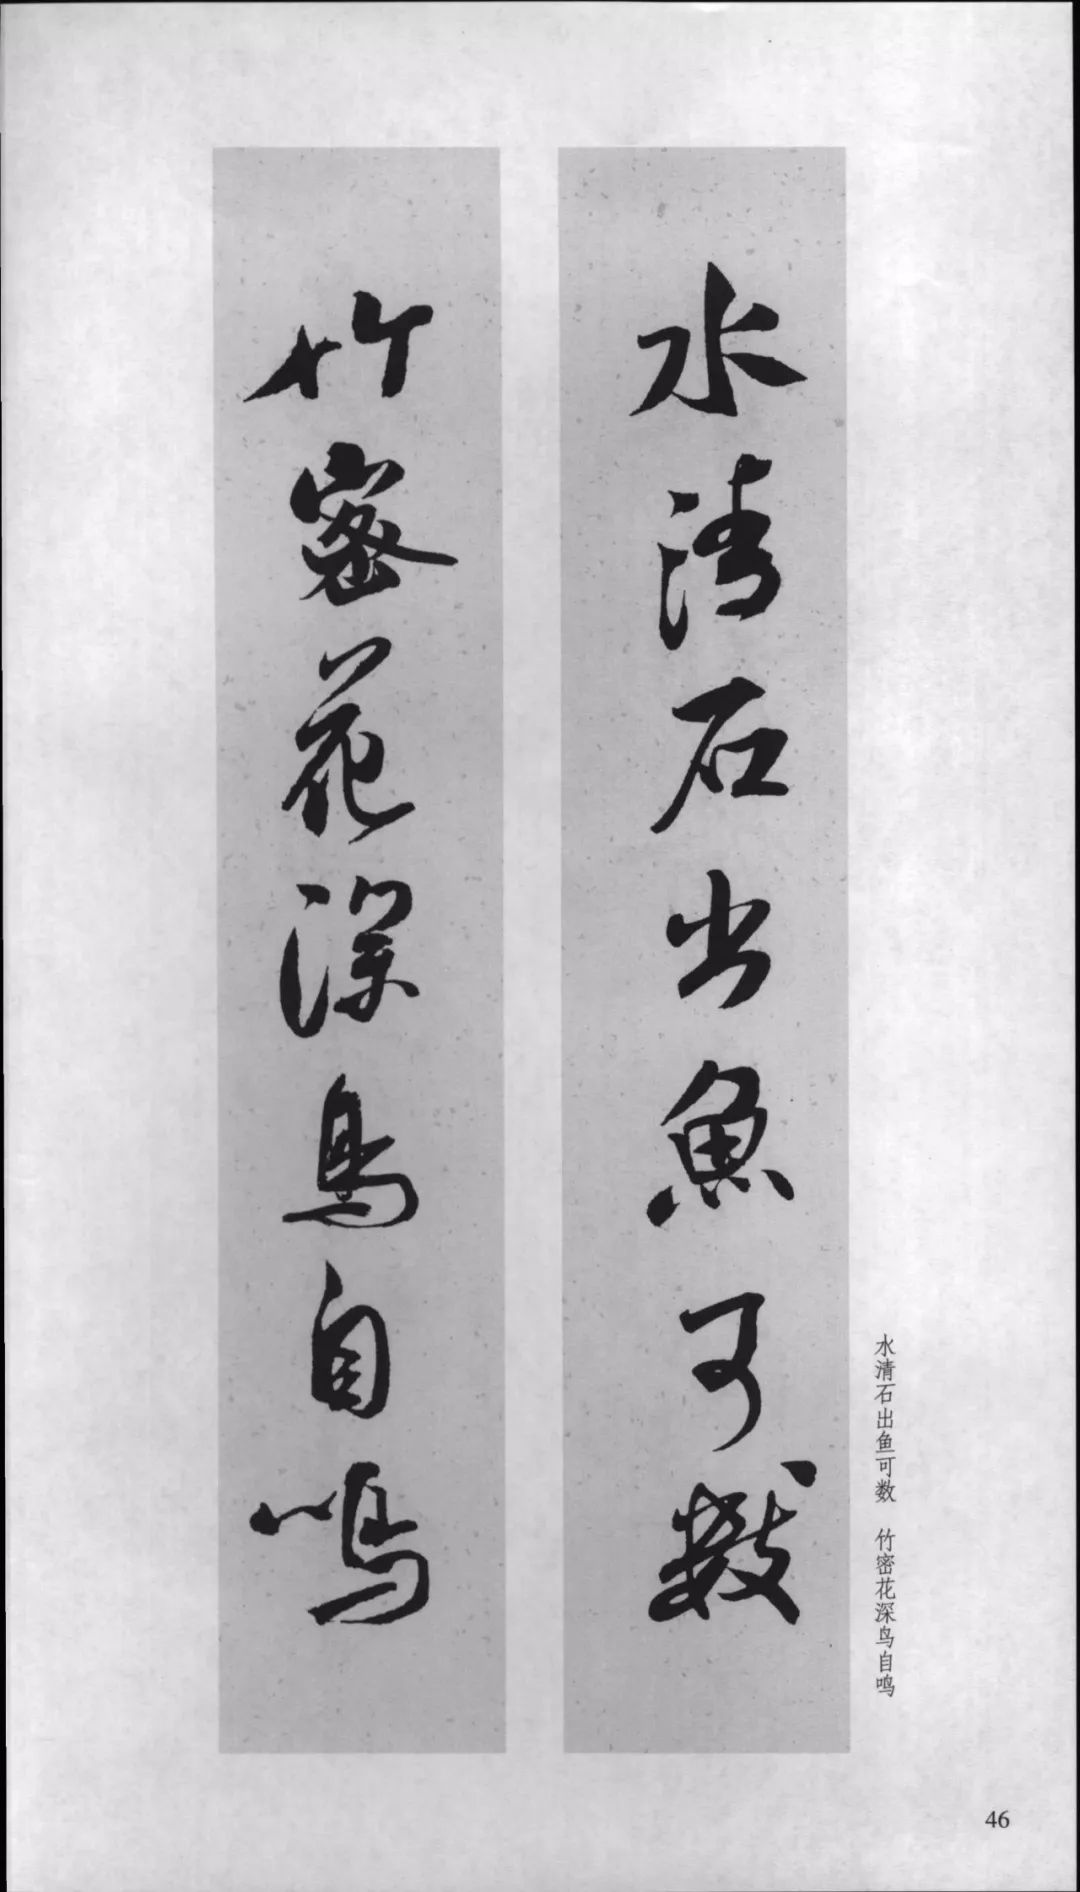 水清石出魚可數
竹密花深鳥自鳴
水清石出鱼可数 竹密花深鸟自鸣
46